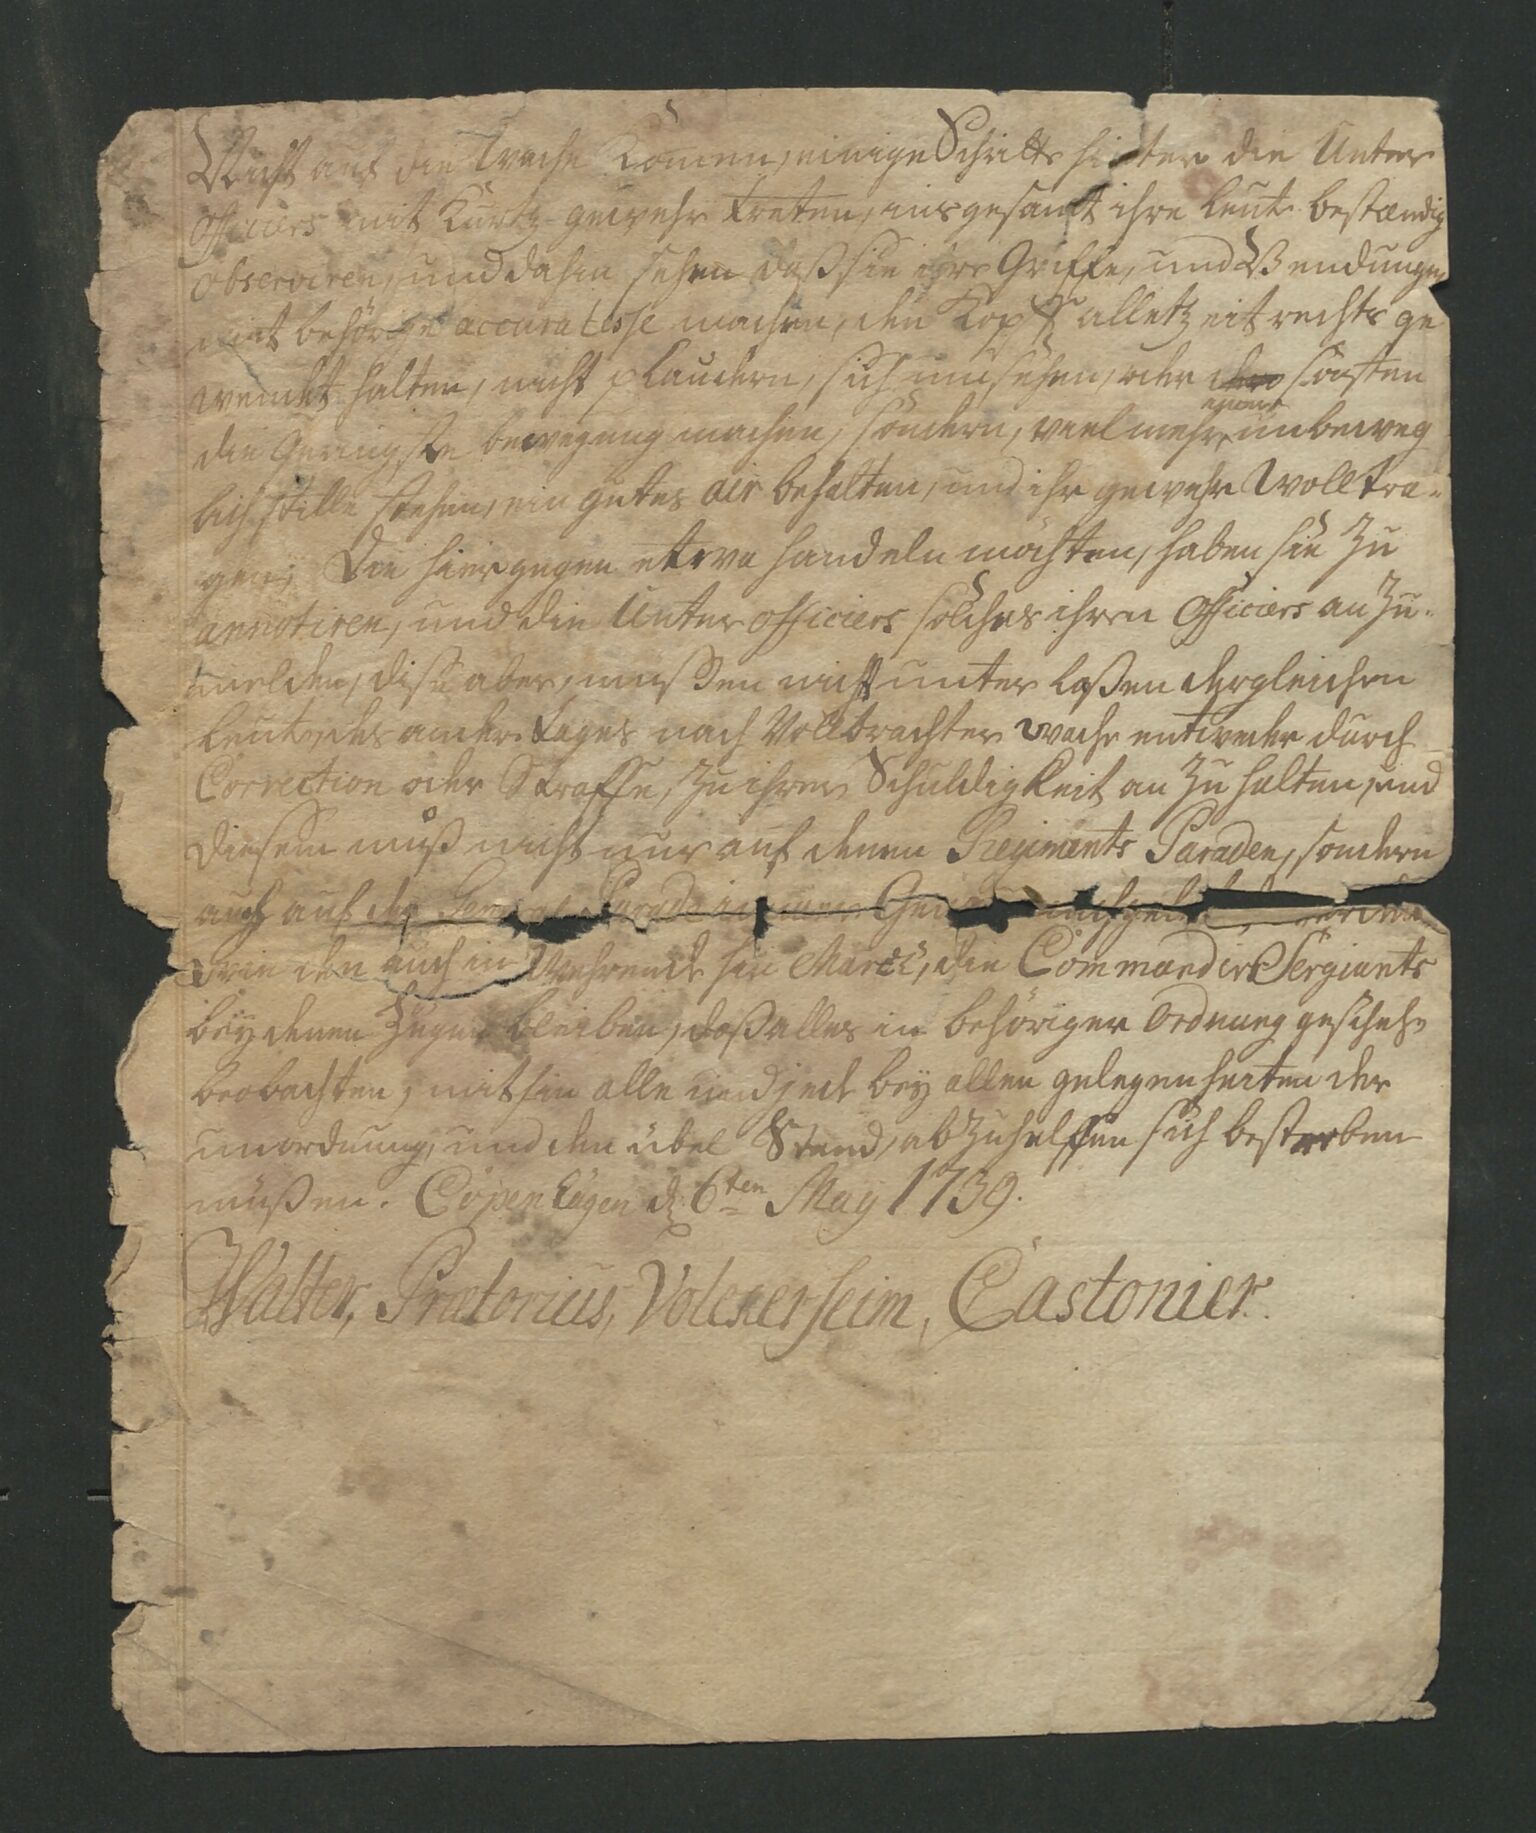 Nicht auf die Wache Komen, einige Schritte hinter die Unter
Officiers mit Kurtz gewehr treten, ins gesamt ihre Leute bestændig
observiren, und dahin sehen daß sie ihre Griffe, und Wendungen
mit behörige accuratesse machen, den Kopf alletzeit rechts ge
wendet halten, nicht plaudern, sich umsehen, oder sonsten
die Geringste bewegung machen, sondern, viel mehr unbeweg
lich stille stehen, ein gutes air behalten, und ihr gewehr Woll tra-
gen; Die hiergegen etwa handeln möchten, haben sie Zu
annotiren, und die Unter officiers solches ihren Officiers an Zu-
melden, diße aber, mußen nicht unter laßen dergleichen
Leute, des ander Tages nach Vollbrachter wache entweder durch
Correction oder Straffe, Zu ihrer Schuldigkeit an Zu halten, und
diesem muß nicht nur auf denen Regiments Paraden, sondern
auch auf der General Parade
wie den auch in Wehrende hin March, die Commandir Sergiants
bey denen Zugen bleiben, daß alles in behöriger Ordnung gescheh
beobachten, mithin alle und jede bey allen gelegenheiten der
unordnung, und den übel Stand, ab Zu helffen sich bestreben
müßen. Copenhagen d. 6ten May 1739.
Walter, Prætorius, Volckersheim, Castonier.